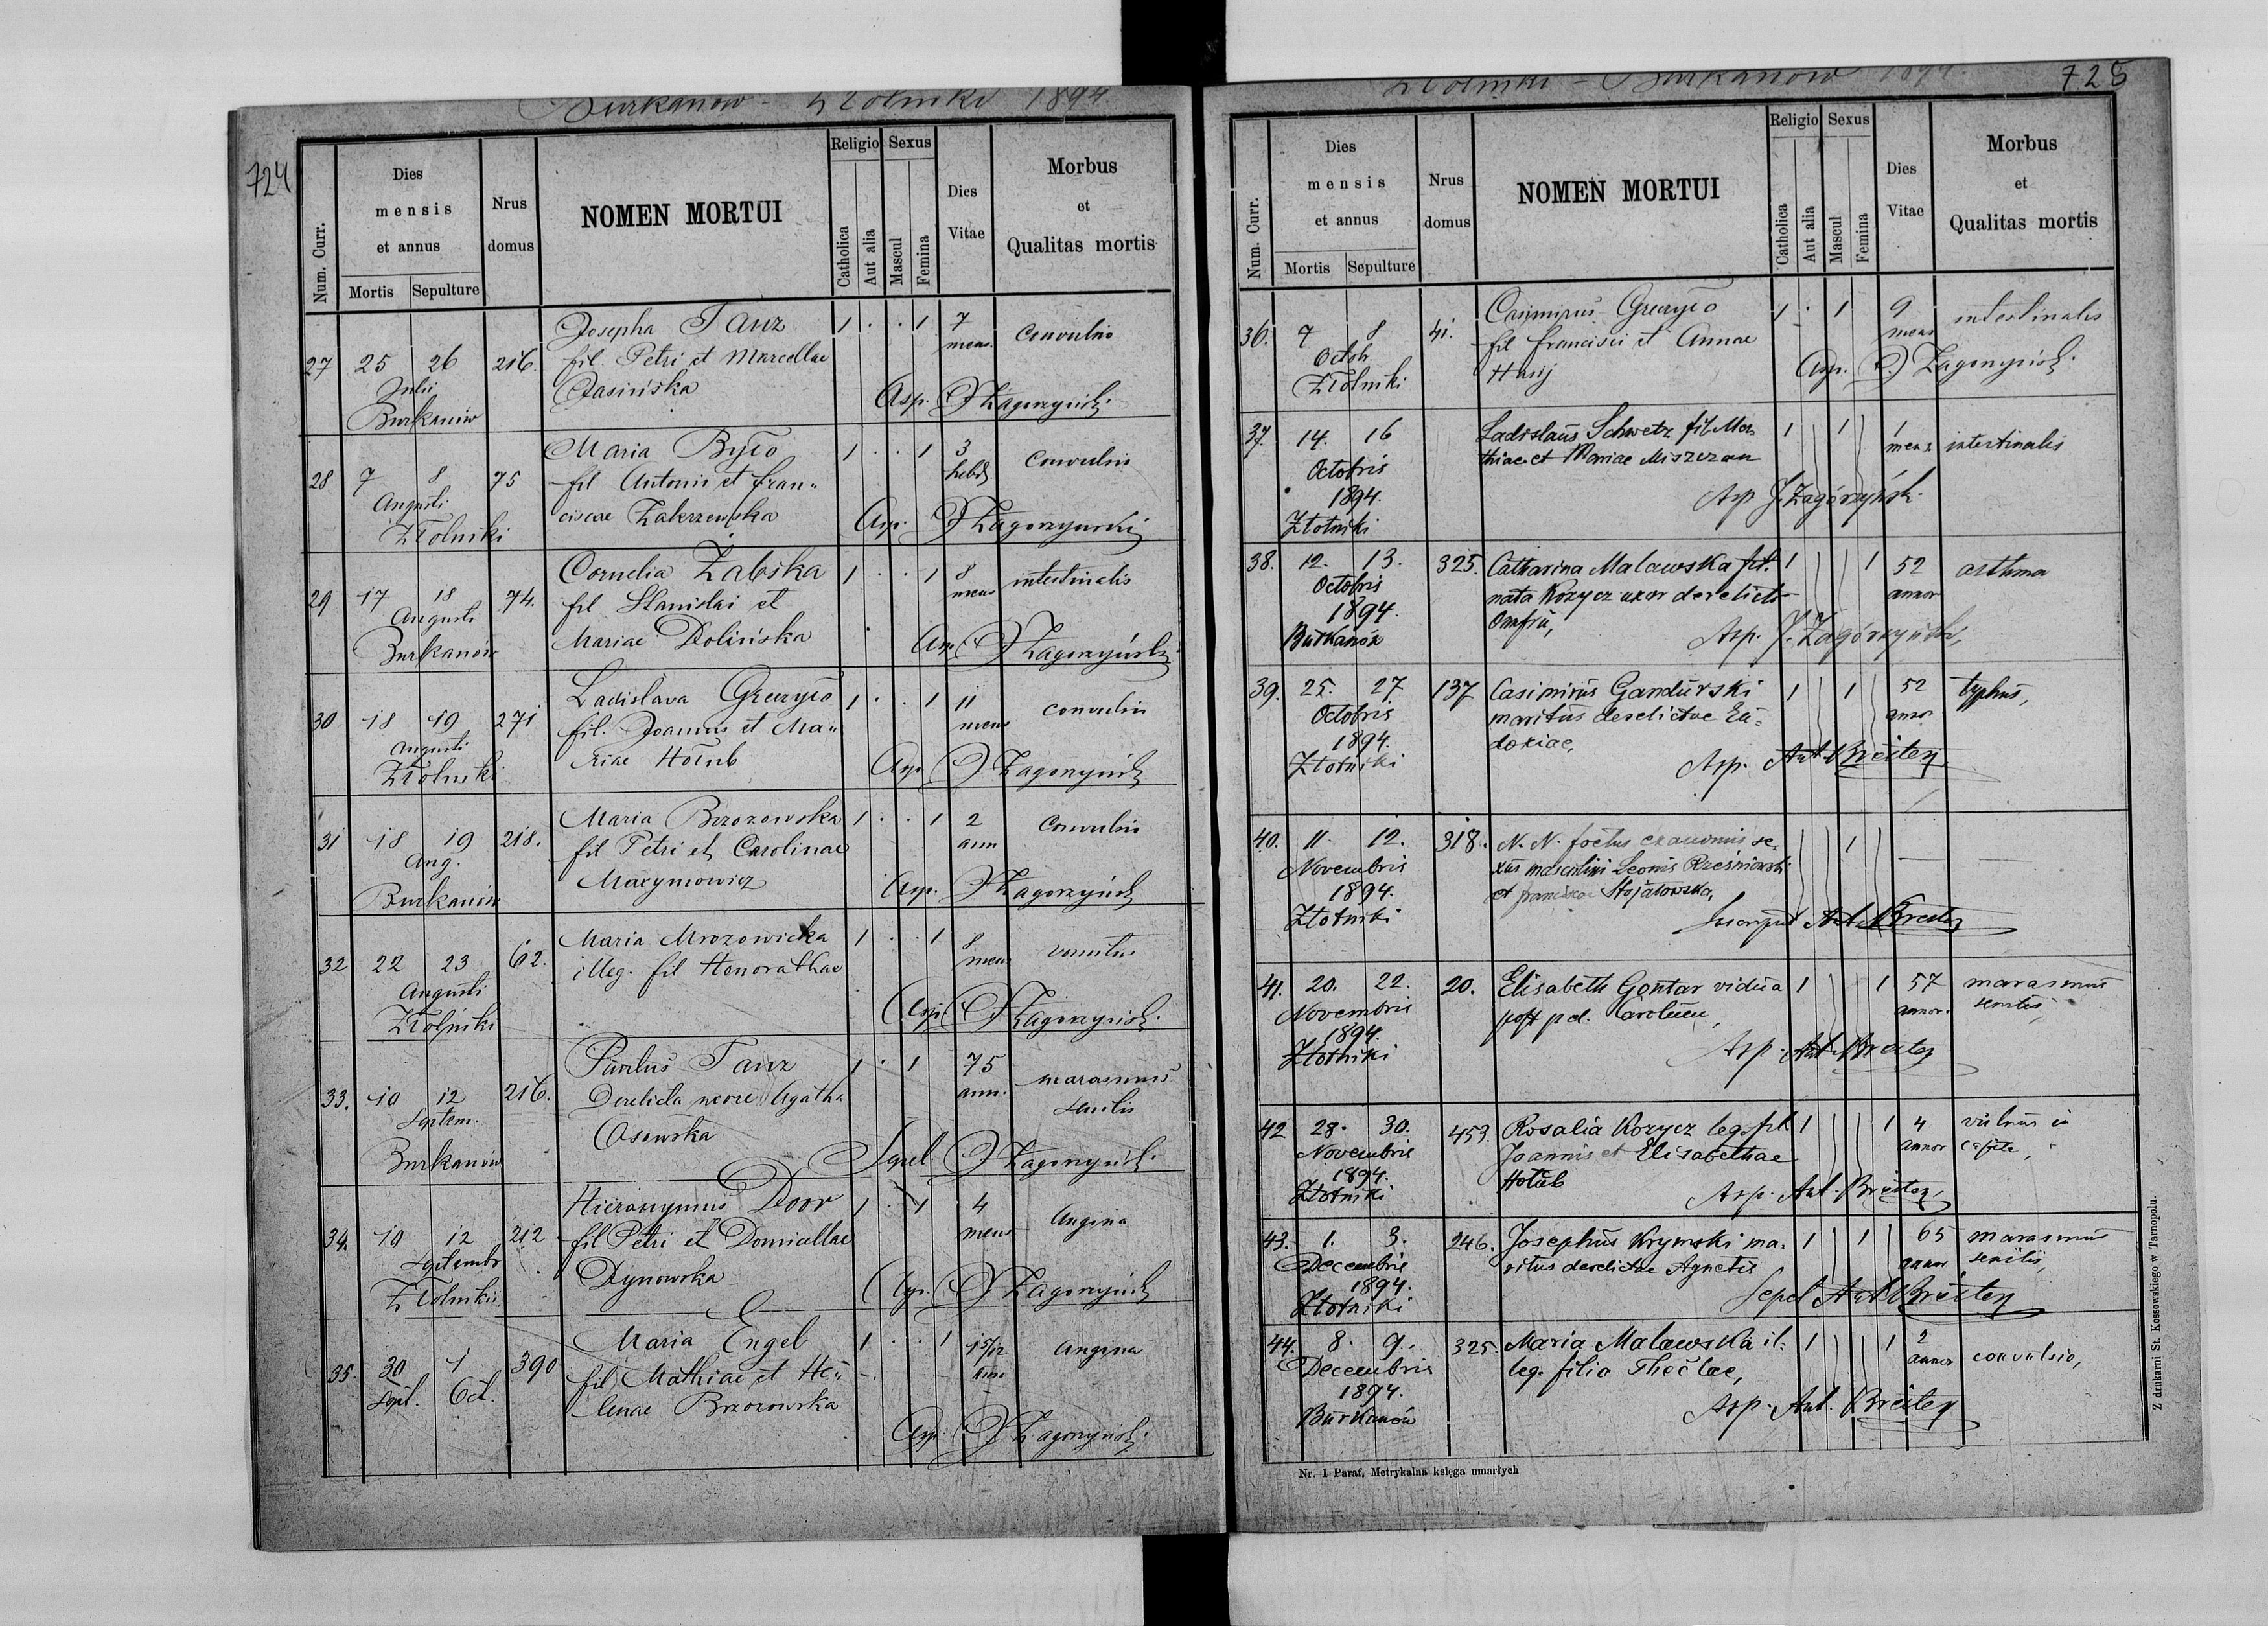 Burkanow - Złotniki 1894.
724
Num. Curr.
Dies
mensis
et annus
Mortis Sepulture
Nrus
domus
NOMEN MORTUI
Religio
Catholica
Aut alia
Sexus
Mascul
Femina
Dies
Vitae
Morbus
et
Qualitas mortis
Josepha Tanz 1 . . 1 7 convulsio
27 25 26 216. fil. Petri et Marcellae mens.
Julii Jasińska Asp.
Burkanów
Maria Byto 1 . . 1 3 convulsio
28 7 8 75 fil Antonii et Fran„ hebd
Augusti ciscae Zakrzewska Asp. J Zagorzynski
Złotniki
Cornelia Żabska 1 . . 1 8 intestinalis
29 17 18 74. fil Stanislai et mens
Augusti Mariae Dolińska Asp J Zagorzyński
Burkanów
Ladislava 1 . . 1 11 convulsio
30 18 19 271 fil. Joannis et Ma„ mens
Augusti riae Hołub Asp J Zagorzyński
Złotniki
Maria Brzozowska 1 . . 1 2 Convulsio
31 18 19 218. fil Petri et Carolinae ann
Aug. Maxymowicz Asp. J Zagorzyński
Burkanów
Maria Mrozowicka 1 . . 1 8 vomitus
32 22 23 62. illeg. fil Honorathae mens
Augusti Asp J Zagorzyński
Złotniki
Paulus Tanz 1 . 1 75 marasmus
33. 10 12 216. Derelicta uxore Agatha ann. senilis
Septem. Osowska Sepel J Zagorzyński
Burkanów
Hieronymus Door 1 . 1 4 Angina
34. 10 12 212 fil Petri et Domicellae mens
Septembr Dynowska Asp. J Zagorzyński
Złotniki
Maria Engel 1 . . 1 1 5/12 Angina
35. 30 1 390 fil Mathiae et He„ ann
Sept. Oct. lenae Brzozowska
Asp. J. Zagorzyński
Złotniki - Burkanów 1894.
725
Num. Curr.
Dies
mensis
et annus
Mortis Sepulture
Nrus
domus
NOMEN MORTUI
Religio
Catholica
Aut alia
Sexus
Mascul
Femina
Dies
Vitae
Morbus
et
Qualitas mortis
Casimirus 1 . 1 9 intestinalis
36. 7 8 41. fil Francisci et Annae mens
Octob Asp. J. Zagorzyński
Złotniki
37. 14. 16 Ladislaus Schwetz fil Ma- 1 1 1 intestinalis
Octobris thiae et Mariae Miszczan mens
1894. Asp J. Zagórzyński
Złotniki
38. 12. 13. 325. Catharina Malawska fil. 1 1 52 asthma
Octobris nata Kozycz uxor derelicti annor
1894. Onufrii, Asp. J. Zagórzyński,
Burkanów
39. 25. 27 137 Casimirus Gandurski 1 1 52 typhus,
Octobris maritus derelictae Eu- annor
1894. doxiae, Asp. Ant. Breitey
Złotniki
40. 11. 12. 318. N. N. foetus exanimis se- 1
Novembris xus masculini Leonis
1894. et Franciscae Stojałowska,
Złotniki Ant. Breitey
41. 20. 22. 20. Elisabeth Gontar vidua 1 1 57 marasmus
Novembris post pd. annor. senilis,
1894. Asp. Ant. Breitey
Złotniki
42 28. 30. 453. Rosalia Kozycz leg. fil 1 1 4 vulnus in
Novembris Joannis et Elisabethae annor capite,
1894. Hołub Asp. Ant. Breitey,
Złotniki
43. 1. 3. 246. Josephus Krymski ma- 1 1 65 marasmus
Decembris ritus derelictae Agnetis annor senilis,
1894. Sepel Ant. Breitey
Złotniki
44. 8. 9. 325. Maria Malawska il- 1 1 2
Decembris leg. filia Theclae, annor convulsio,
1894. Asp. Ant. Breitey
Burkanów
Nr. 1 Paraf. Metrykalna księga umarłych
Z drukarni St. Kossowskiego w Tarnopolu.